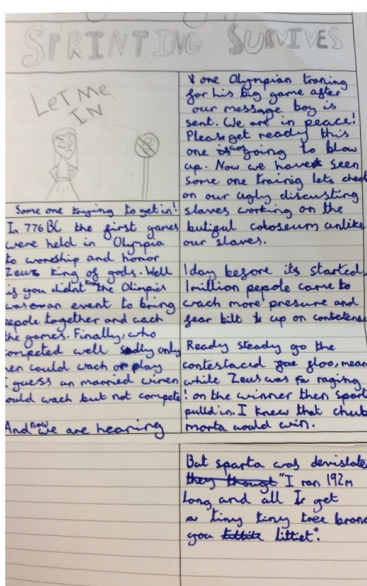 SPRINTING SURVIVES
LET ME
IN
Some one trying to get in!
In 776 BC the first games
were held in Olympia
to worship and honor
Zeus king of gods. Well
if you didnt the Olimpis
was an event to bring
pepole together and
the games. Finally, who
competed well sadly only
men could wach or play
I guess un married
could wach but not compete
And now we are hearing
one Olympian traning
for his big game after
our message boy is
sent. We are in peace!
Please get ready this
one is going to blow
up. Now we have seen
some one trainig lets check
on our ugly, discusting
slaves working on the
butiful coloseum unlike
our slaves.
1 day before its started
1 million pepole came to
wach more presure and
fear bilt up on
Ready steady go the
mean
while Zeus was raging
! on the winner then
pulld in. I knew that
would win.
But sparta was
they thought "I ran 192m
long and all I get
a tiny tiny tree
you